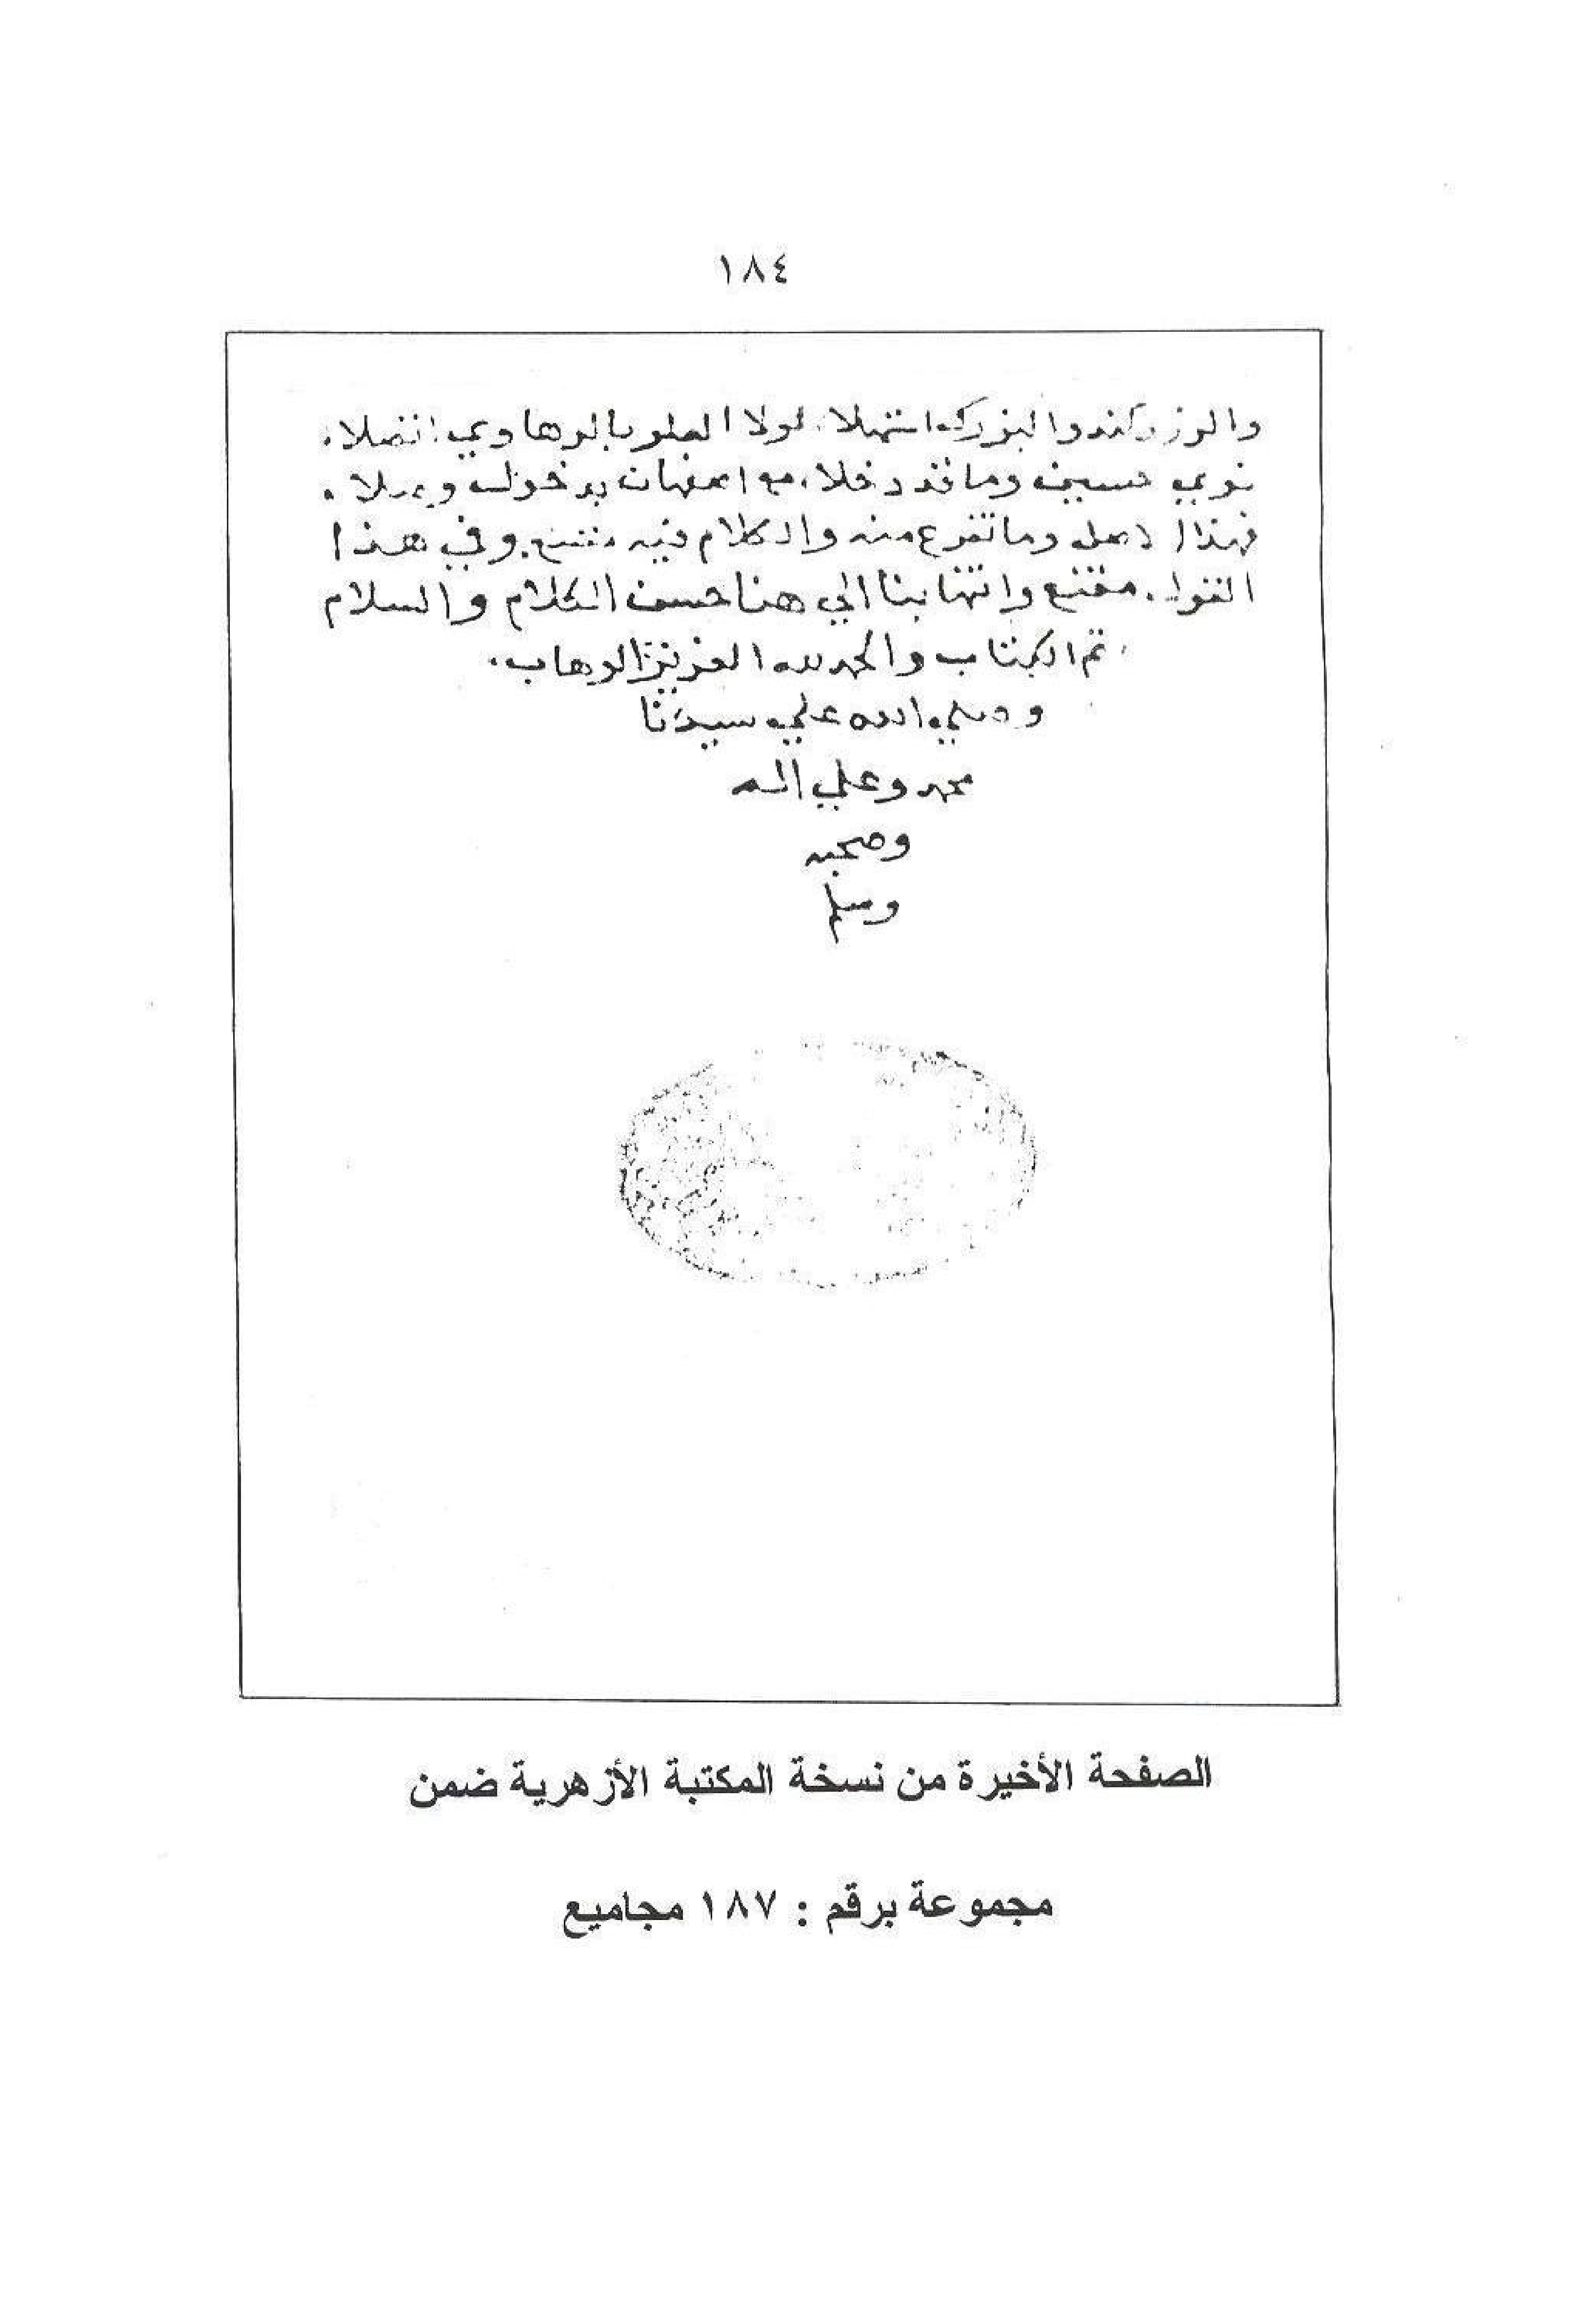 ١٨٤
والبزركه استهلا لولا بالرهاوي اتصلا
نوي حسين وما قد دخلا مع اصفهان بدخول
فهذا الاصل وما تفرع منه والكلام فيه متسع وفي هذا
القول مقنع وانتها بنا الي هنا حسن الكلام والسلام
تم الكتاب والحمد لله العزيز الوهاب
وصلي الله علي سيدنا
محمد وعلي اله
وصحبه
وسلم
الصفحة الأخيرة من نسخة المكتبة الأزهرية ضمن
مجموعة برقم : ١٨٧ مجاميع